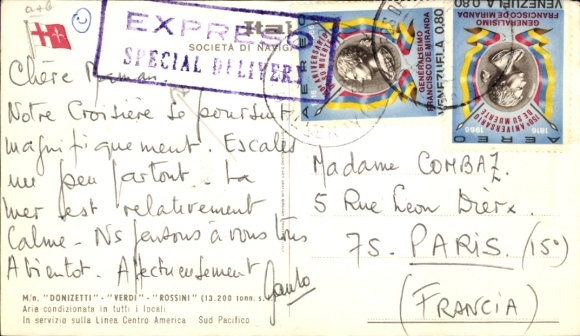 a+b
EXPRESO
SPECIAL DELIVERY
Ital
SOCIETÀ DI NAVIGA
Chère Maman.
Notre Croisière se poursuit
magnifiquement. Escales
un peu partout. La
mer est relativement
Calme. Ns pensons à vous tous
A bientot. Affectueusement
M/n. "DONIZETTI" - "VERDI" - "ROSSINI" (13.200 tonn. s.
Aria condizionata in tutti i locali
In servizio sulla Linea Centro America Sud Pacifico
AEREO
150º ANIVERSARIO
DE SU MUERTE
GENERALISIMO
FRANCISCO DE MIRANDA
VENEZUELA 0.80
GENERALISIMO
FRANCISCO DE MIRANDA
VENEZUELA 0.80
1816 1966
150º ANIVERSARIO
DE SU MUERTE
AEREO
Madame COMBAZ.
5 Rue Leon Dierx.
75. PARIS (15º)
(FRANCIA)